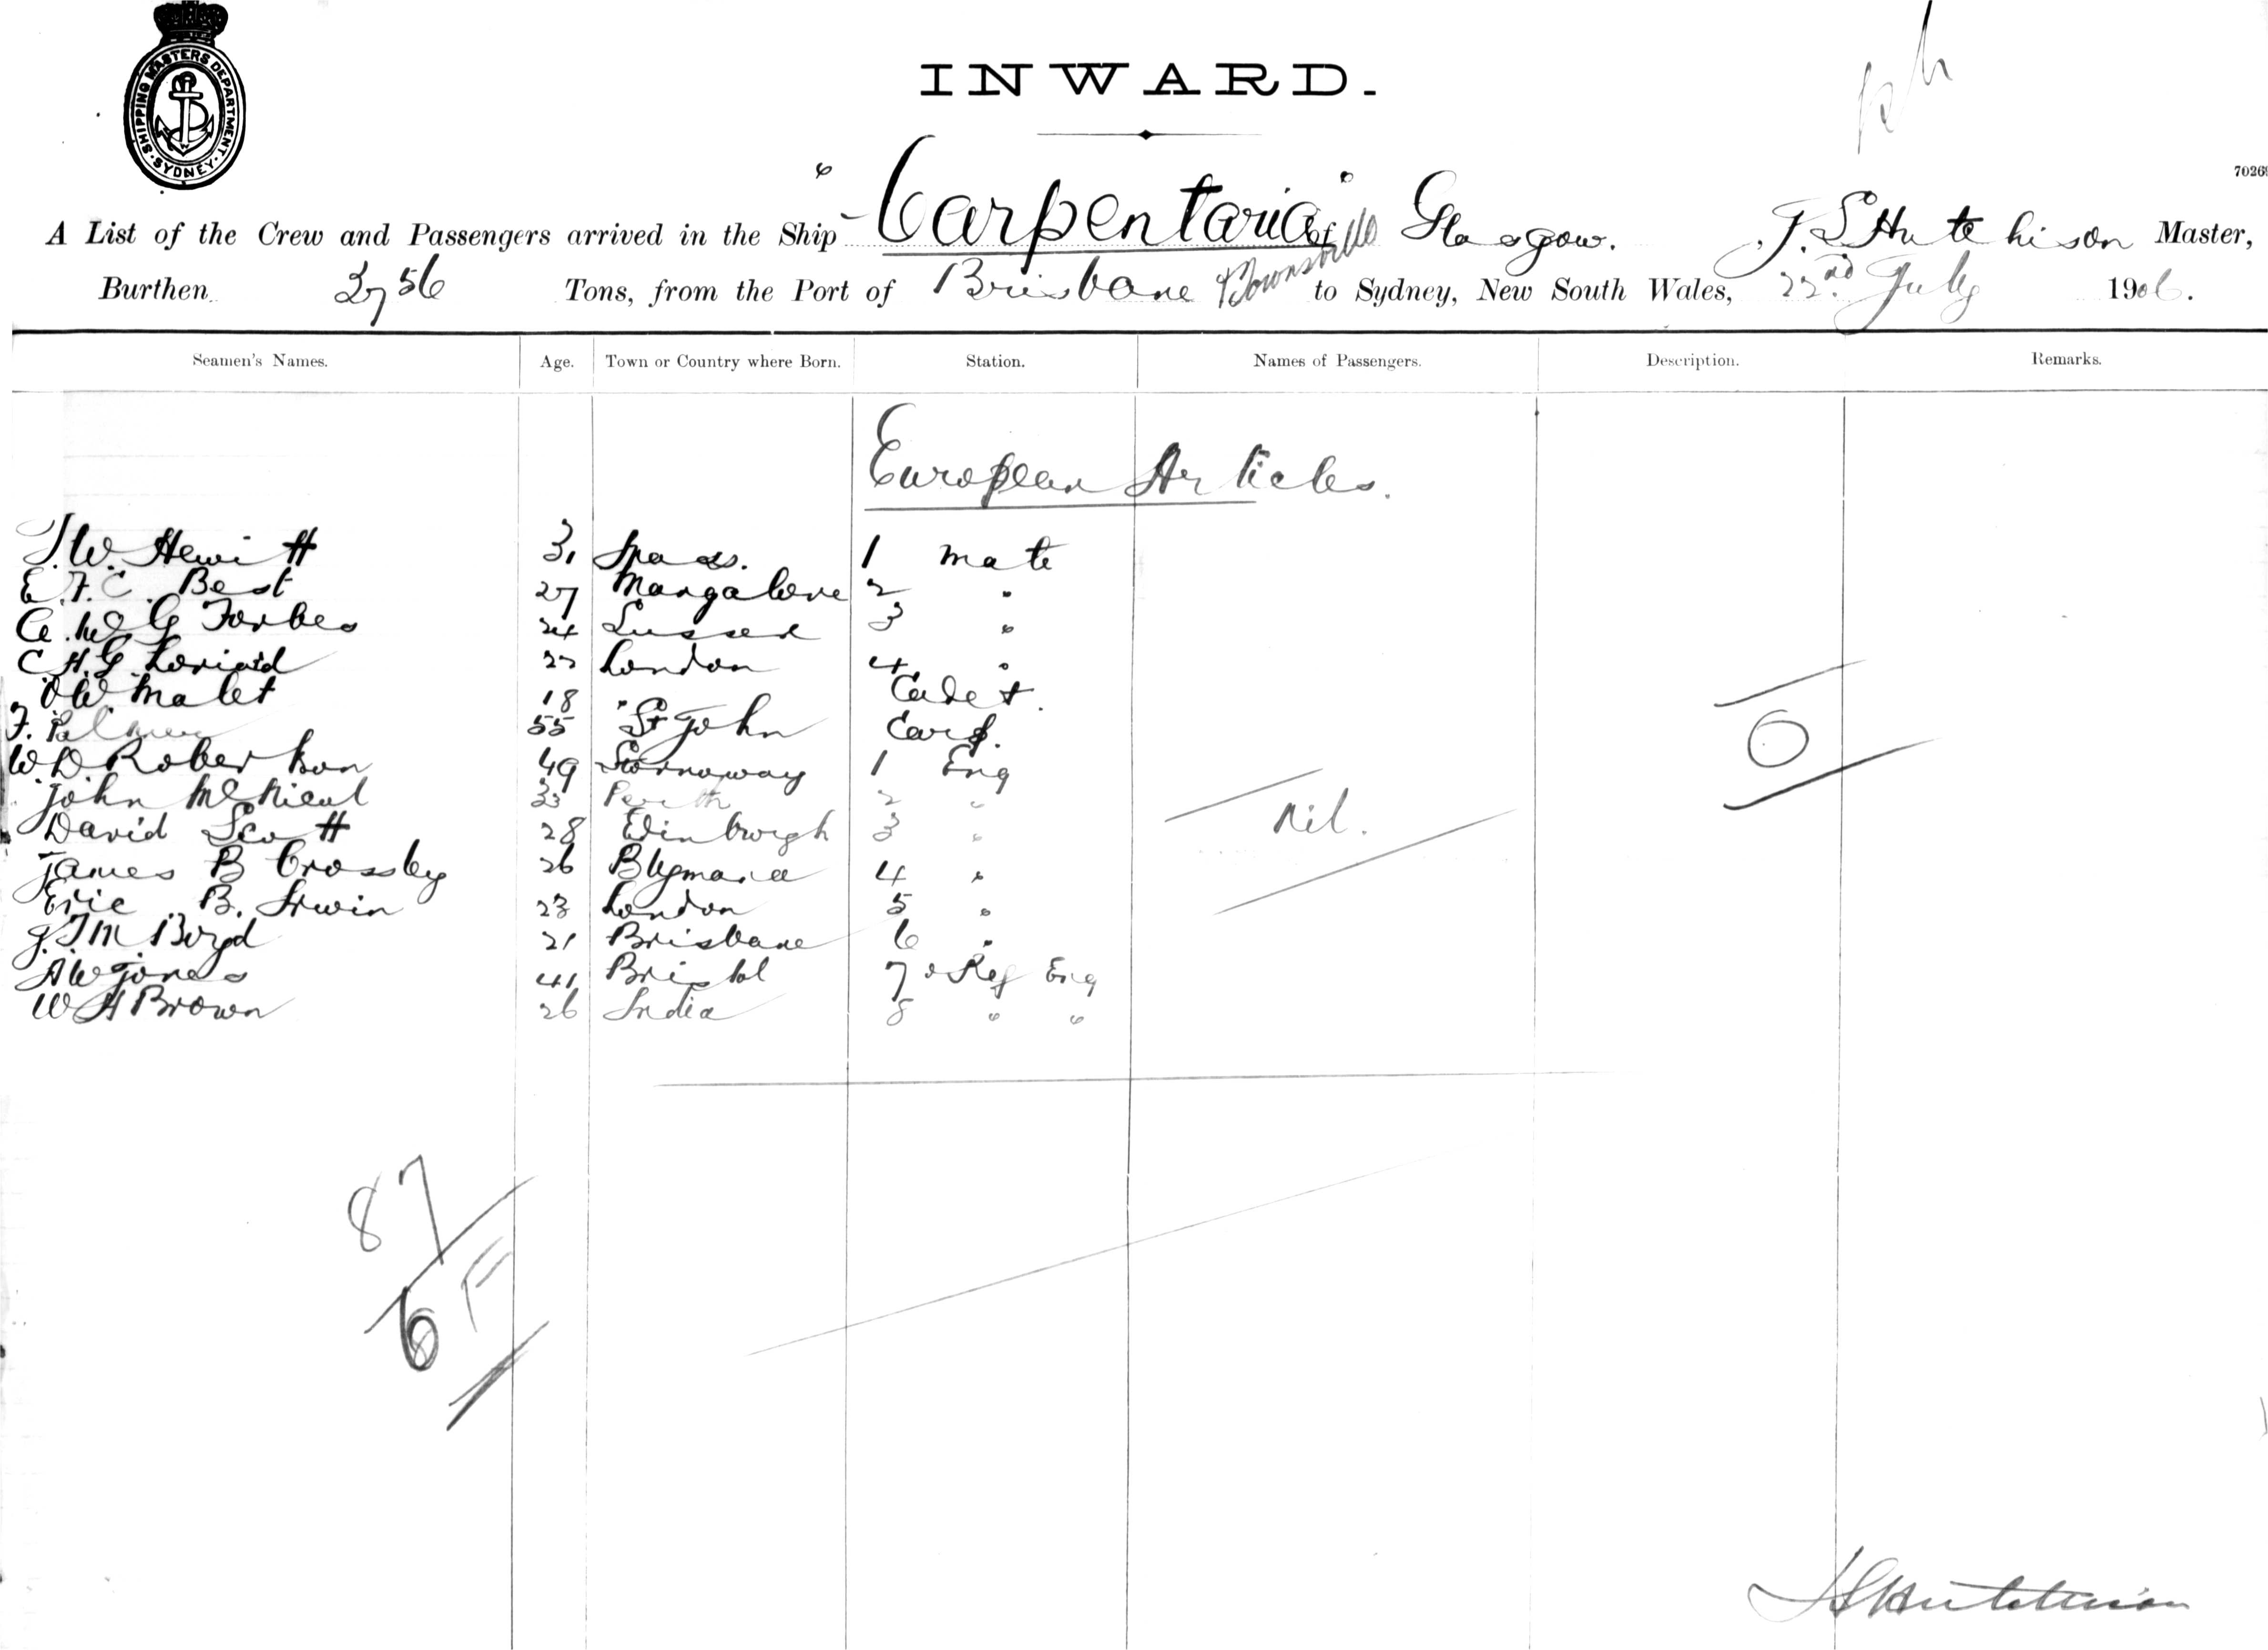 SHIPPING MASTERS DEPARTMENT · SYDNEY ·
INWARD.
70269
A List of the Crew and Passengers arrived in the Ship "Carpentaria" of Glasgow. J. S Hutchison Master,
Burthen 2756 Tons, from the Port of Brisbane & Townsville to Sydney, New South Wales, 22nd July 1906.
Seamen's Names. Age. Town or Country where Born. Station. Names of Passengers. Description. Remarks.
European Articles.
T. W. Hewitt 31 1 Mate
E. F. C. Best 27 Mangalore 2 "
G Forbes 24 Sussex 3 "
C. H. G. 22 London 4 "
O W. Malet 18 " Cadet.
F. Palmer 55 St John Carp.
W. D. Robertson 49 Stornoway 1 Eng
John McNicol 33 Perth 2 "
David Scott 28 Edinburgh 3 "
James B Crossley 26 4 "
Eric B. Irwin 23 London 5 "
J. T. M Boyd 21 Brisbane 6 "
A W Jones 41 Bristol 7 & Ref Eng
W H Brown 26 India 8 " "
Nil.
O
87
6 F
J S Hutchison